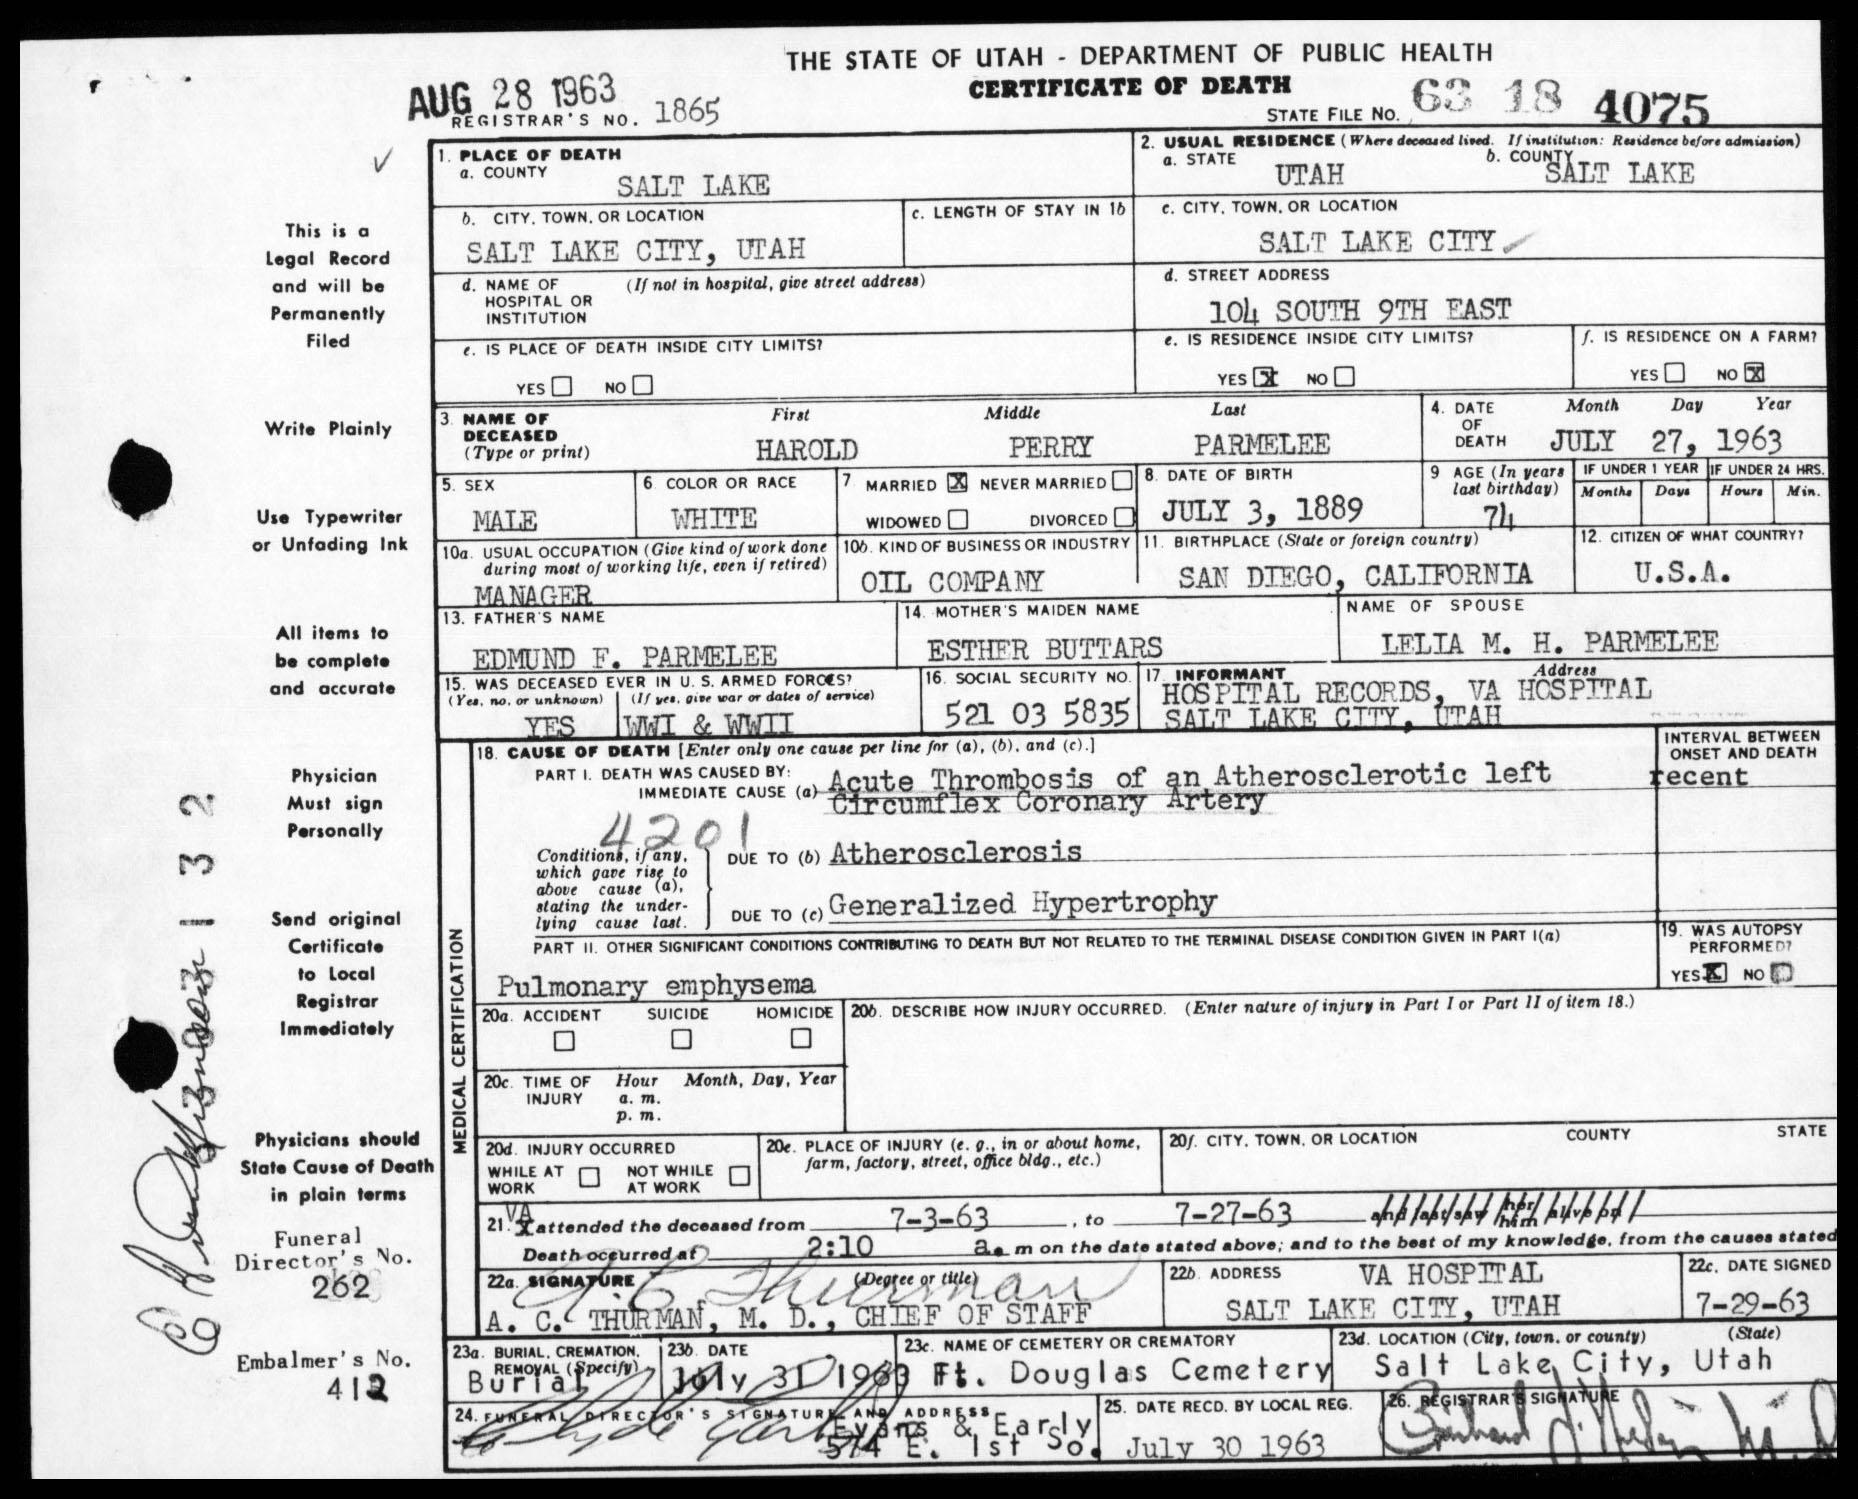 THE STATE OF UTAH - DEPARTMENT OF PUBLIC HEALTH
CERTIFICATE OF DEATH
AUG 28 1963
REGISTRAR'S NO. 1865
STATE FILE NO. 63 18 4075
1. PLACE OF DEATH
a. COUNTY
SALT LAKE
2. USUAL RESIDENCE (Where deceased lived. If institution: Residence before admission)
a. STATE
UTAH
b. COUNTY
SALT LAKE
b. CITY, TOWN, OR LOCATION
SALT LAKE CITY, UTAH
c. LENGTH OF STAY IN 1b
c. CITY, TOWN, OR LOCATION
SALT LAKE CITY
d. NAME OF HOSPITAL OR INSTITUTION
(If not in hospital, give street address)
d. STREET ADDRESS
104 SOUTH 9TH EAST
e. IS PLACE OF DEATH INSIDE CITY LIMITS?
YES NO
e. IS RESIDENCE INSIDE CITY LIMITS?
YES X NO
f. IS RESIDENCE ON A FARM?
YES NO X
3. NAME OF DECEASED
(Type or print)
First Middle Last
HAROLD PERRY PARMELEE
4. DATE OF DEATH
Month Day Year
JULY 27, 1963
5. SEX
MALE
6. COLOR OR RACE
WHITE
7. MARRIED X NEVER MARRIED
WIDOWED DIVORCED
8. DATE OF BIRTH
JULY 3, 1889
9 AGE (In years last birthday)
74
IF UNDER 1 YEAR
Months Days
IF UNDER 24 HRS.
Hours Min.
10a. USUAL OCCUPATION (Give kind of work done
during most of working life, even if retired)
MANAGER
10b. KIND OF BUSINESS OR INDUSTRY
OIL COMPANY
11. BIRTHPLACE (State or foreign country)
SAN DIEGO, CALIFORNIA
12. CITIZEN OF WHAT COUNTRY?
U.S.A.
13. FATHER'S NAME
EDMUND F. PARMELEE
14. MOTHER'S MAIDEN NAME
ESTHER BUTTARS
NAME OF SPOUSE
LELIA M. H. PARMELEE
15. WAS DECEASED EVER IN U. S. ARMED FORCES?
(Yes, no, or unknown) (If yes, give war or dates of service)
YES WWI & WWII
16. SOCIAL SECURITY NO.
521 03 5835
17. INFORMANT Address
HOSPITAL RECORDS, VA HOSPITAL
SALT LAKE CITY, UTAH
MEDICAL CERTIFICATION
18. CAUSE OF DEATH [Enter only one cause per line for (a), (b), and (c).]
INTERVAL BETWEEN ONSET AND DEATH
PART I. DEATH WAS CAUSED BY:
IMMEDIATE CAUSE (a) Acute Thrombosis of an Atherosclerotic left
Circumflex Coronary Artery
recent
4201
Conditions, if any,
which gave rise to
above cause (a),
stating the under-
lying cause last.
DUE TO (b) Atherosclerosis
DUE TO (c) Generalized Hypertrophy
PART II. OTHER SIGNIFICANT CONDITIONS CONTRIBUTING TO DEATH BUT NOT RELATED TO THE TERMINAL DISEASE CONDITION GIVEN IN PART I(a)
Pulmonary emphysema
19. WAS AUTOPSY PERFORMED?
YES X NO
20a. ACCIDENT SUICIDE HOMICIDE
20b. DESCRIBE HOW INJURY OCCURRED. (Enter nature of injury in Part I or Part II of item 18.)
20c. TIME OF INJURY
Hour Month, Day, Year
a. m.
p. m.
20d. INJURY OCCURRED
WHILE AT WORK NOT WHILE AT WORK
20e. PLACE OF INJURY (e. g., in or about home,
farm, factory, street, office bldg., etc.)
20f. CITY, TOWN, OR LOCATION COUNTY STATE
21. VA attended the deceased from 7-3-63, to 7-27-63 and last saw her him alive on
Death occurred at 2:10 a. m on the date stated above; and to the best of my knowledge, from the causes stated
22a. SIGNATURE (Degree or title)
A. C. Thurman
A. C. THURMAN, M. D., CHIEF OF STAFF
22b. ADDRESS VA HOSPITAL
SALT LAKE CITY, UTAH
22c. DATE SIGNED
7-29-63
23a. BURIAL, CREMATION, REMOVAL (Specify)
Burial
23b. DATE
July 31 1963
23c. NAME OF CEMETERY OR CREMATORY
Ft. Douglas Cemetery
23d. LOCATION (City, town, or county) (State)
Salt Lake City, Utah
24. FUNERAL DIRECTOR'S SIGNATURE AND ADDRESS
Evans & Early
574 E. 1st So.
25. DATE RECD. BY LOCAL REG.
July 30 1963
26. REGISTRAR'S SIGNATURE
This is a
Legal Record
and will be
Permanently
Filed
Write Plainly
Use Typewriter
or Unfading Ink
All items to
be complete
and accurate
Physician
Must sign
Personally
Send original
Certificate
to Local
Registrar
Immediately
Physicians should
State Cause of Death
in plain terms
Funeral
Director's No.
262
Embalmer's No.
412
132